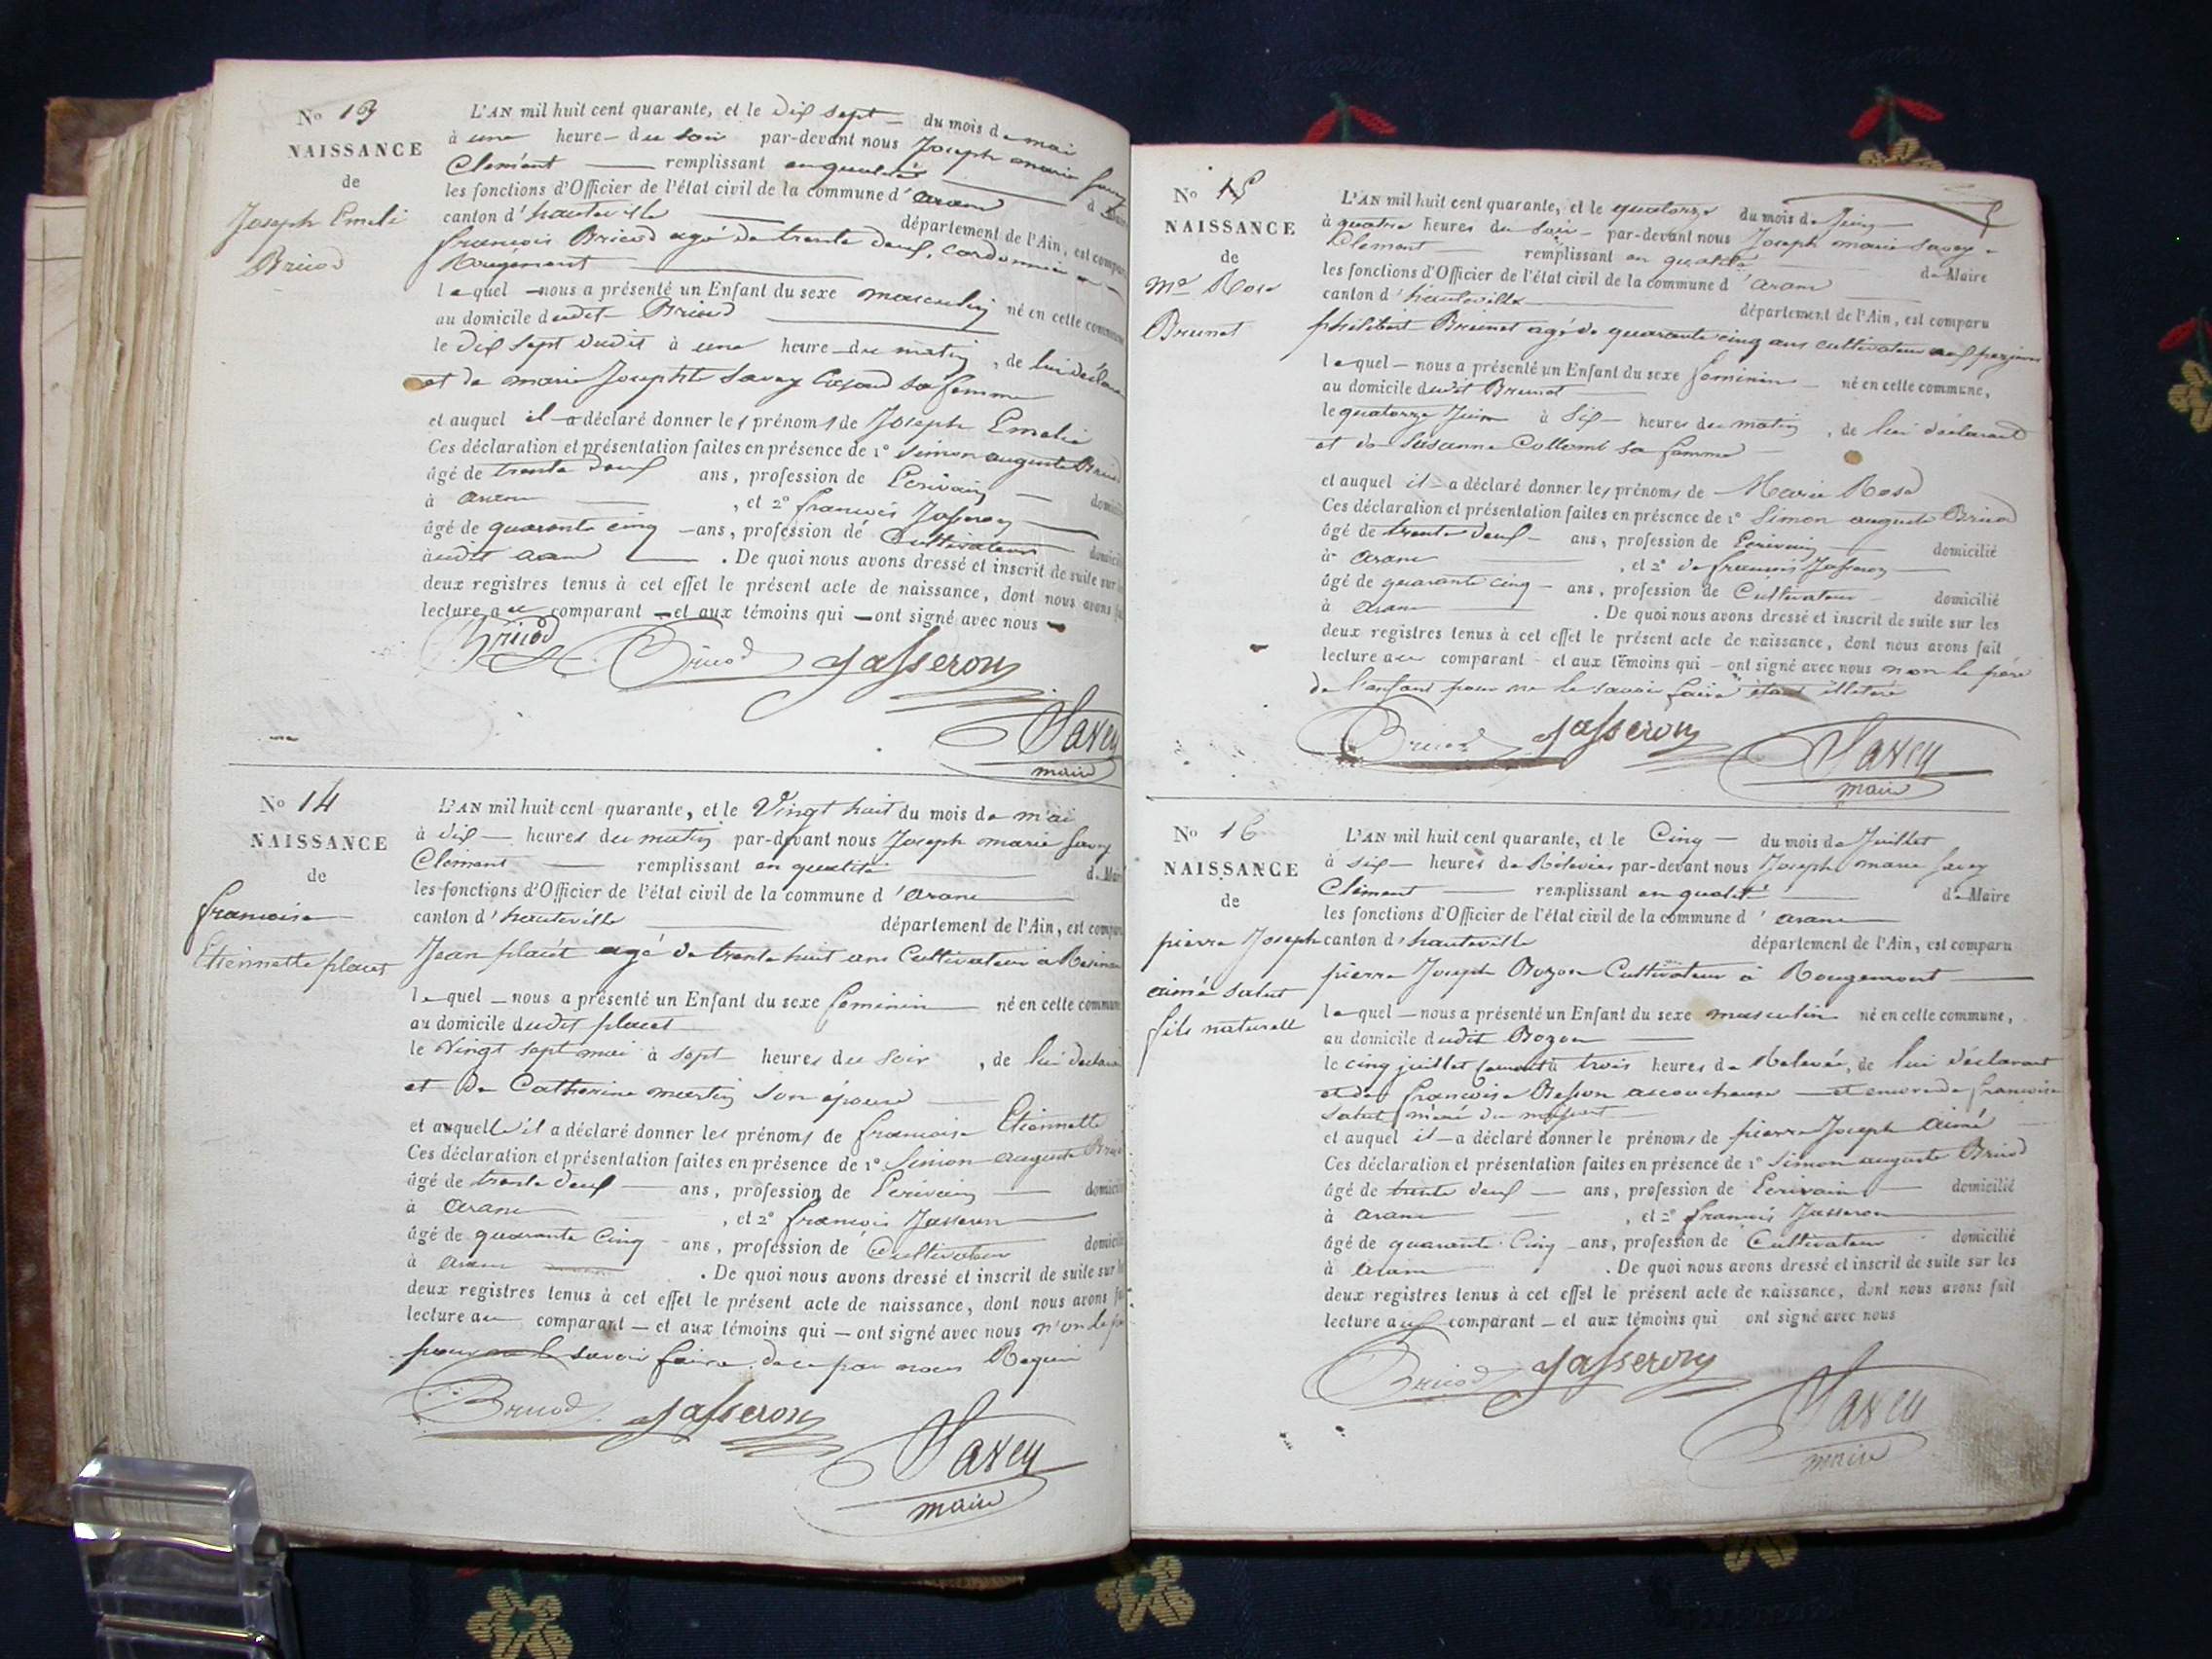 No 13
NAISSANCE
de
Joseph Emeli
Bricod
L'AN mil huit cent quarante, et le dix sept du mois de mai
à une heure du soir par-devant nous Joseph marie Savey
Clement remplissant en qualité de Maire
les fonctions d'Officier de l'état civil de la commune d'aranc
canton d'hauteville département de l'Ain, est comparu
francois Bricod agé de trente deux, cordonnier
Rougemont
lequel nous a présenté un Enfant du sexe masculin né en cette commune
au domicile dudit Bricod
le dix sept dudit à une heure du matin, de lui déclarant
et de marie Josephte Savey sa femme
et auquel il a déclaré donner les prénoms de Joseph Emelie
Ces déclaration et présentation faites en présence de 1° Simon auguste Bricod
âgé de trente deux ans, profession de Ecrivain domicilié
à aranc, et 2° francois Jasseron
âgé de quarante cinq ans, profession de Cultivateur domicilié
audit aranc. De quoi nous avons dressé et inscrit de suite sur les
deux registres tenus à cet effet le présent acte de naissance, dont nous avons fait
lecture au comparant et aux témoins qui ont signé avec nous
Bricod Bricod Jasseron
Savey
maire
No 14
NAISSANCE
de
francoise
Etiennette placet
L'AN mil huit cent quarante, et le Vingt huit du mois de mai
à dix heures du matin par-devant nous Joseph marie Savey
Clement remplissant en qualité de Maire
les fonctions d'Officier de l'état civil de la commune d'aranc
canton d'hauteville département de l'Ain, est comparu
Jean placet agé de trente huit ans Cultivateur à
lequel nous a présenté un Enfant du sexe feminin né en cette commune
au domicile dudit placet
le Vingt sept mai à sept heures du soir, de lui déclarant
et de Catherine martin son épouse
et auquelle il a déclaré donner les prénoms de francoise Etiennette
Ces déclaration et présentation faites en présence de 1° Simon auguste Bricod
âgé de trente deux ans, profession de Ecrivain domicilié
à aranc, et 2° francois Jasseron
âgé de quarante cinq ans, profession de Cultivateur domicilié
à aranc. De quoi nous avons dressé et inscrit de suite sur les
deux registres tenus à cet effet le présent acte de naissance, dont nous avons fait
lecture au comparant et aux témoins qui ont signé avec nous
pour ne le savoir faire de ce par nous Requi
Bricod Jasseron
Savey
maire
No 15
NAISSANCE
de
Mie Rose
Brunet
L'AN mil huit cent quarante, et le quatorze du mois de Juin
à quatre heures du soir par-devant nous Joseph marie Savey
Clement remplissant en qualité de Maire
les fonctions d'Officier de l'état civil de la commune d'aranc
canton d'hauteville département de l'Ain, est comparu
philibert Brunet agé de quarante cinq ans cultivateur
lequel nous a présenté un Enfant du sexe feminin né en cette commune,
au domicile dudit Brunet
le quatorze Juin à Six heures du matin, de lui déclarant
et de Susanne Collomb sa femme
et auquel il a déclaré donner les prénoms de Marie Rose
Ces déclaration et présentation faites en présence de 1° Simon auguste Bricod
âgé de trente deux ans, profession de Ecrivain domicilié
à aranc, et 2° de francois Jasseron
âgé de quarante cinq ans, profession de Cultivateur domicilié
à aranc. De quoi nous avons dressé et inscrit de suite sur les
deux registres tenus à cet effet le présent acte de naissance, dont nous avons fait
lecture au comparant et aux témoins qui ont signé avec nous non le père
de l'enfant pour ne le savoir faire étant illetéré
Bricod Jasseron
Savey
maire
No 16
NAISSANCE
de
pierre Joseph
aimé Salut
fils naturell
L'AN mil huit cent quarante, et le Cinq du mois de Juillet
à six heures de Relevée par-devant nous Joseph marie Savey
Clement remplissant en qualité de Maire
les fonctions d'Officier de l'état civil de la commune d'aranc
canton d'hauteville département de l'Ain, est comparu
pierre Joseph Bozon Cultivateur à Rougemont
lequel nous a présenté un Enfant du sexe masculin né en cette commune,
au domicile dudit Bozon
le cinq juillet courant à trois heures de Relevée, de lui déclarant
et de francoise Besson accoucheuse et encore de francoise
Salut mère du
et auquel il a déclaré donner le prénoms de pierre Joseph Aimé
Ces déclaration et présentation faites en présence de 1° Simon auguste Bricod
âgé de trente deux ans, profession de Ecrivain domicilié
à aranc, et 2° francois Jasseron
âgé de quarante Cinq ans, profession de Cultivateur domicilié
à aranc. De quoi nous avons dressé et inscrit de suite sur les
deux registres tenus à cet effet le présent acte de naissance, dont nous avons fait
lecture aux comparant et aux témoins qui ont signé avec nous
Bricod Jasseron
Savey
maire